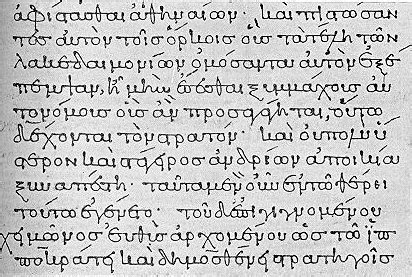 ἀφίστασθαι ἀθηναίων· καὶ πιστώσαν
τες αὐτὸν τοῖς ὅρκοις οἷς τὰ τέλη τῶν
λακεδαιμονίων ὀμόσαντα αὐτὸν ἐξέ
πεμψαν, ἦ μὴν ἔσεσθαι ξυμμάχοις αὐ
τονόμοις οἷς ἂν προσάγηται, οὕτω
δέχονται τὸν στρατόν· καὶ οὐ πολὺ ὕ
στερον καὶ στάγερος ἀνδρίων ἀποικία
ξυναπέστη· ταῦτα μὲν οὖν ἐν τῷ θέρει
τούτω ἐγένετο· τοῦ δ' ἐπιγιγνομένου
χειμῶνος εὐθὺς ἀρχομένου ὡς τῶ ἱπ
ποκράτει καὶ δημοσθένει στρατηγοῖς